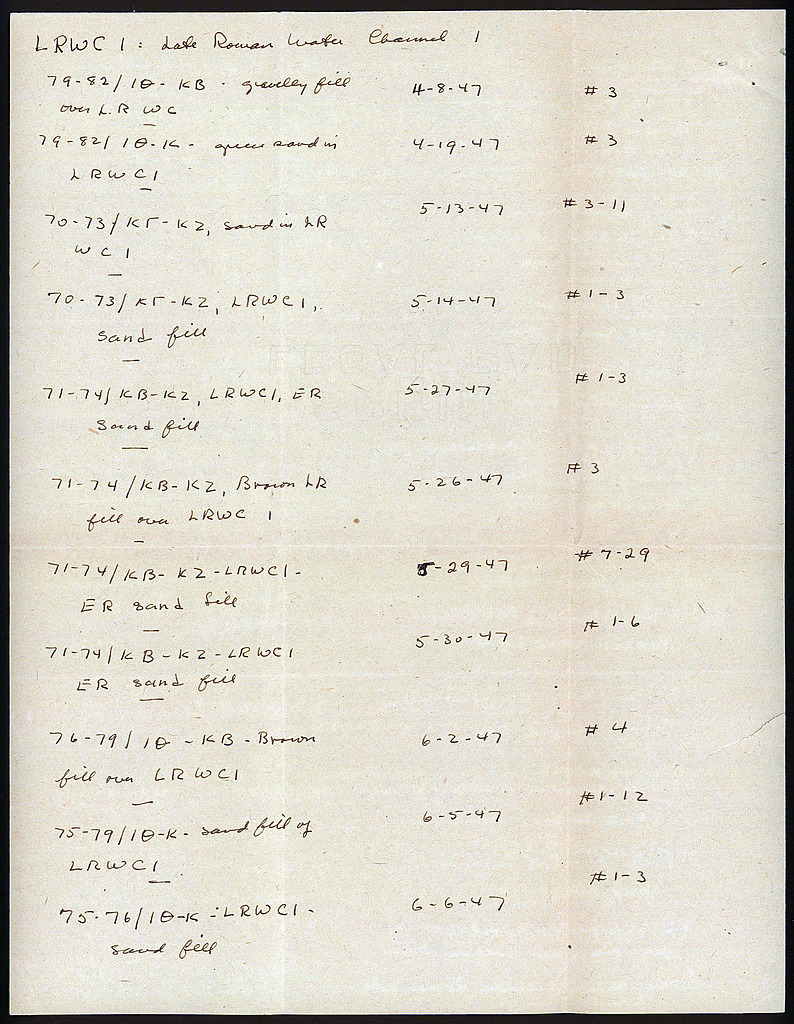 LRWC 1: Late Roman Water Channel 1
79-82/ΙΘ-KB - gravelly fill 4-8-47 #3
over L.R WC
79-82/ΙΘ-K - green sand in 4-19-47 #3
LRWC1
70-73/ΚΓ-KZ, sand in LR 5-13-47 #3-11
WC1
70-73/ΚΓ-KZ, LRWC1, 5-14-47 #1-3
sand fill
71-74/KB-KZ, LRWC1, ER 5-27-47 #1-3
Sand fill
71-74/KB-KZ, Brown LR 5-26-47 #3
fill over LRWC 1
71-74/KB-KZ-LRWC1- 5-29-47 #7-29
ER sand fill
71-74/KB-KZ-LRWC1 5-30-47 #1-6
ER sand fill
76-79/ΙΘ-KB-Brown 6-2-47 #4
fill over LRWC1
75-79/ΙΘ-K- sand fill of 6-5-47 #1-12
LRWC1
75-76/ΙΘ-K-LRWC1- 6-6-47 #1-3
sand fill